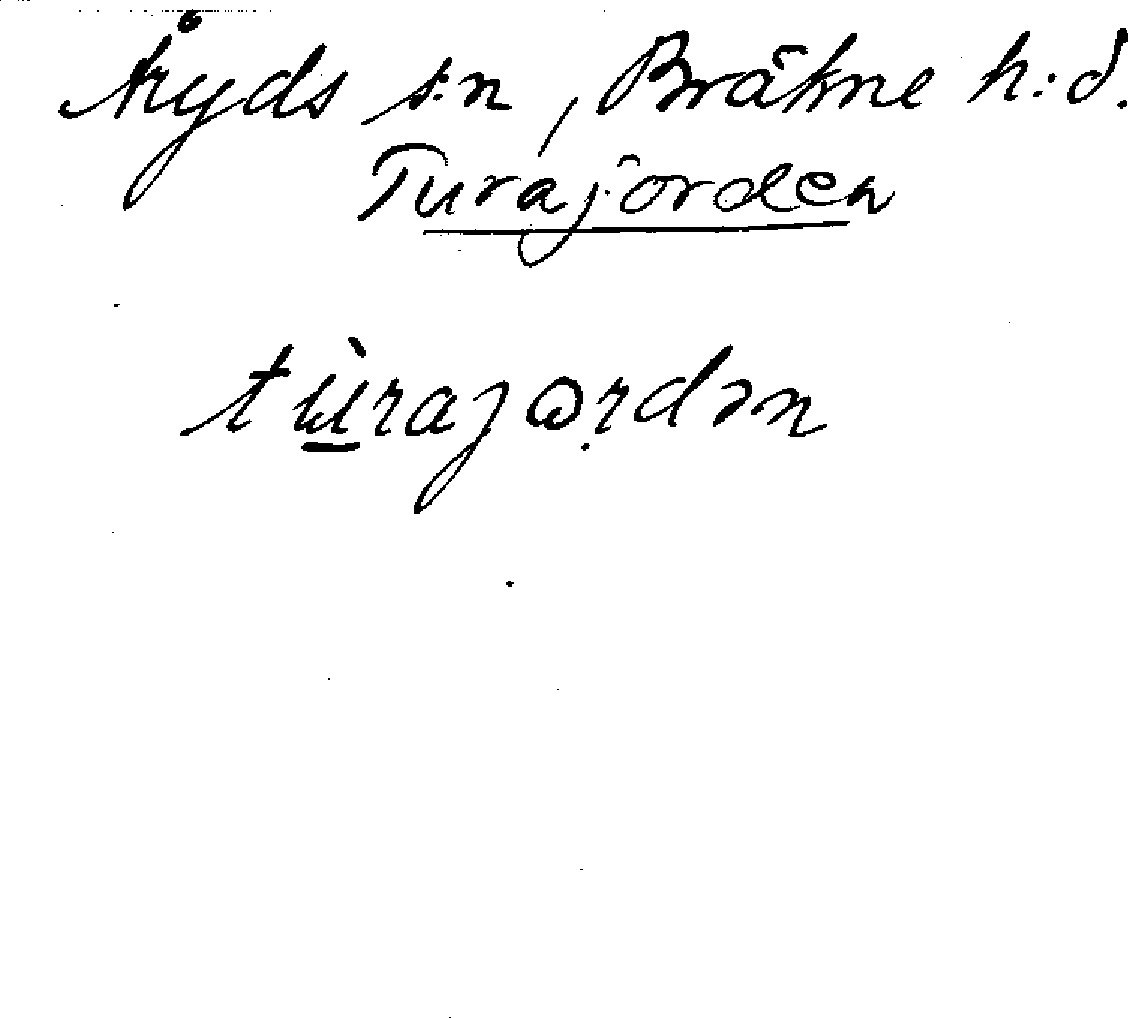 Åryds s:n, Bräkne h:d.
Turajorden
tù̲rajɷṛdən